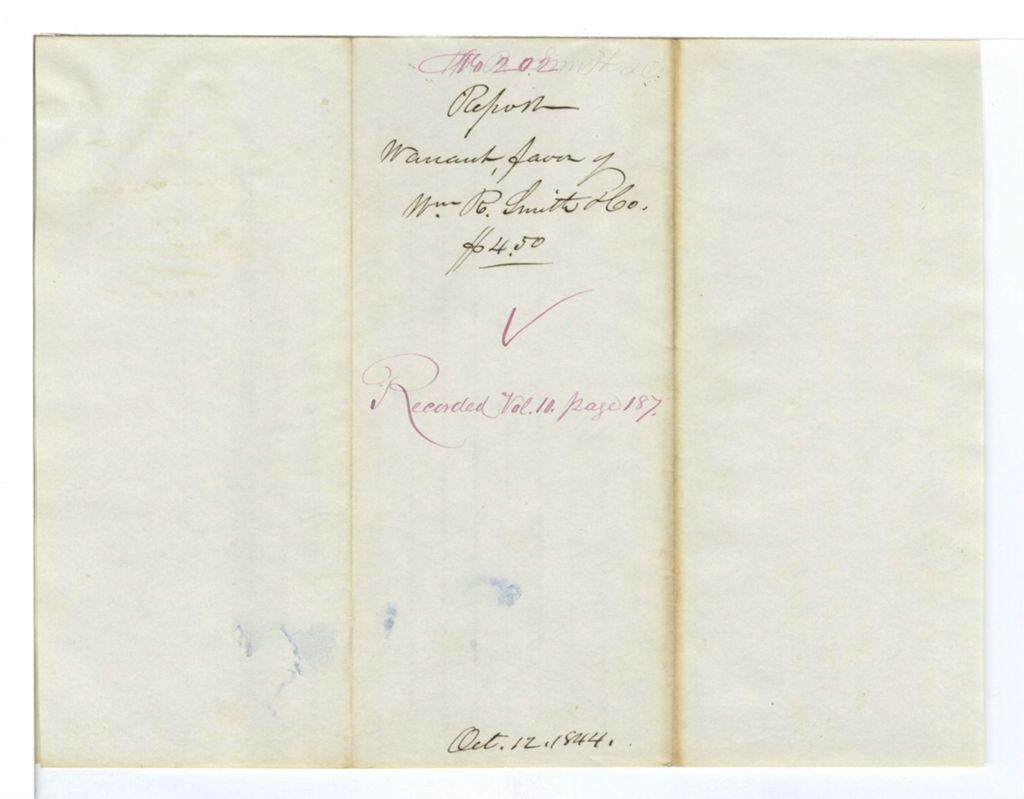 No 202
Report
Warrant, favor of
Wm R. Smith & Co.
$4.50
Recorded Vol. 10. page 187.
Oct. 12. 1844.